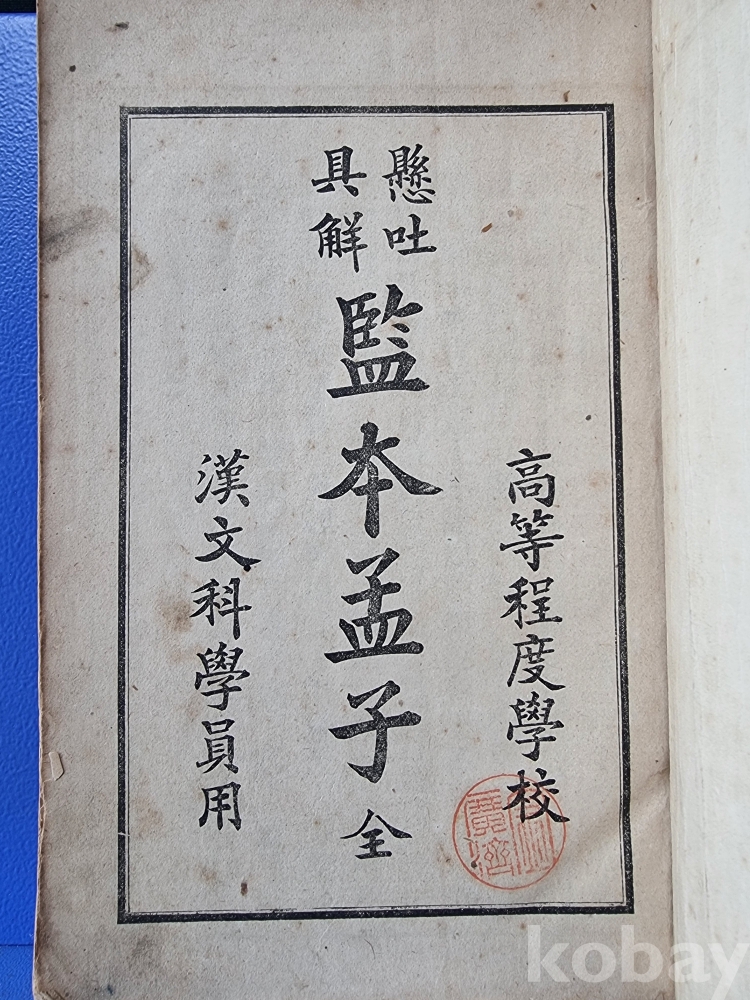 高等程度學校
懸吐
具解
監本孟子 全
漢文科學員用
kobay